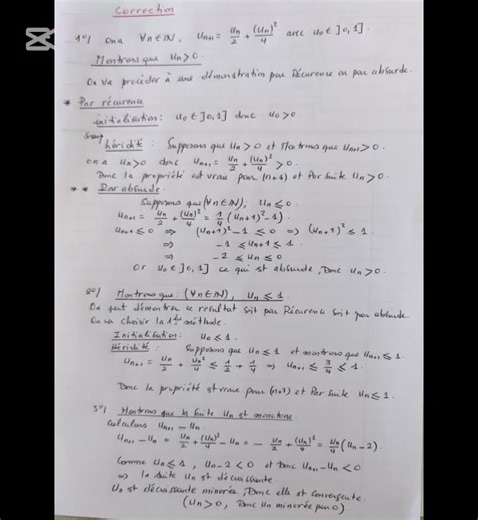 Correction
1°/ on a ∀n∈ℕ, Un+1 = Un/2 + (Un)²/4 avec U0∈]0,1].
Montrons que Un>0.
On va procéder à une démonstration par Récurence ou par absurde.
* Par récurence
initialisation: U0∈]0,1] donc U0>0
héridité: Supposons que Un>0 et Montrons que Un+1>0.
on a Un>0 donc Un+1 = Un/2 + (Un)²/4 >0.
Donc la propriété est vraie pour (n+1) et Par suite Un>0.
** Par absurde.
Supposons que (∀n∈ℕ), Un≤0
Un+1 = Un/2 + (Un)²/4 = 1/4 ((Un+1)²-1).
Un+1≤0 ⇒ (Un+1)²-1 ≤0 ⇒ (Un+1)² ≤ 1
⇒ -1 ≤ Un+1 ≤ 1
⇒ -2 ≤ Un ≤ 0
Or U0∈]0,1] ce qui est absurde, Donc Un>0.
2°/ Montrons que: (∀n∈ℕ), Un≤1
On peut démontrer ce resultat soit par Récurence soit par absurde.
On va choisir la 1ère méthode.
Initialisation: U0≤1.
Héridité: Supposons que Un≤1 et montrons que Un+1≤1.
Un+1 = Un/2 + Un²/4 ≤ 1/2 + 1/4 ⇒ Un+1 ≤ 3/4 ≤ 1.
Donc la propriété est vraie pour (n+1) et Par Suite Un≤1.
3°/ Montrons que la Suite Un est monotone.
Calculons Un+1 - Un
Un+1 - Un = Un/2 + (Un)²/4 - Un = - Un/2 + (Un)²/4 = Un/4 (Un-2).
Comme Un≤1, Un-2<0 et Donc Un+1-Un<0
⇒ la suite Un est décroissante.
Un est décroissante minorée, Donc elle est convergente.
(Un>0, Donc Un minorée par 0).